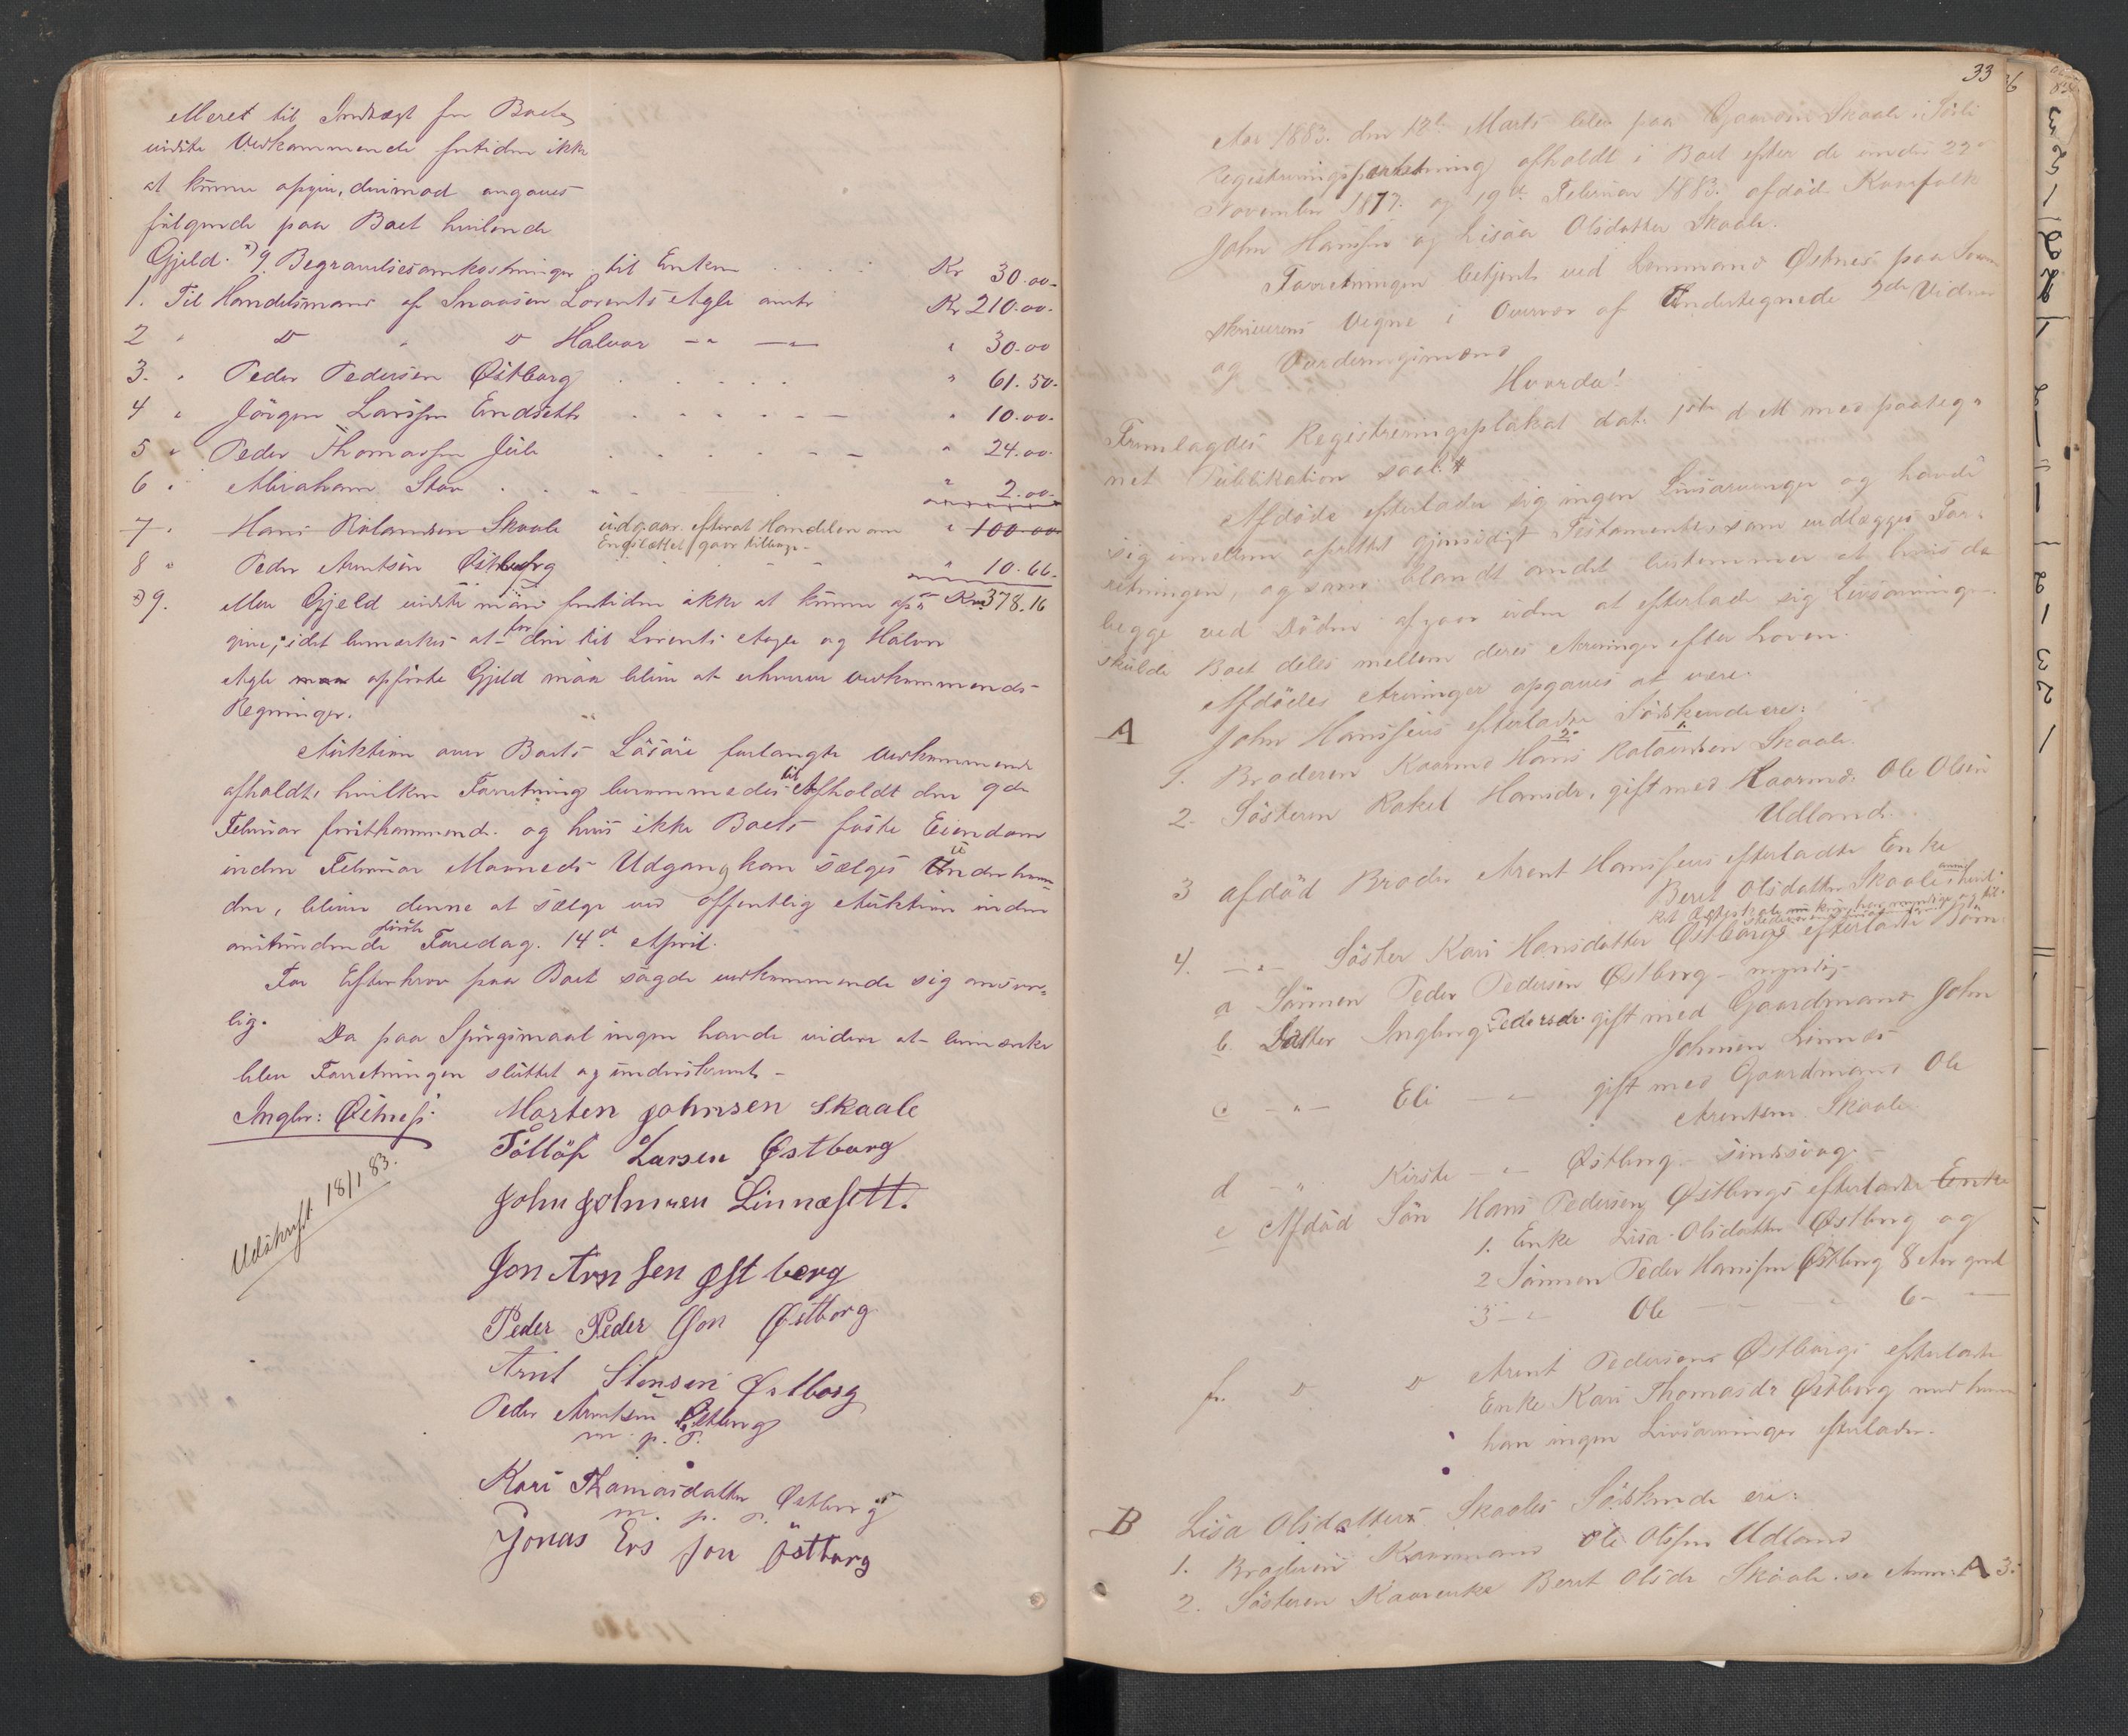 Meret til Indtægt for Boet
vidste Vedkommende fortiden ikke
at kunne opgive, derimod angaves
følgende paa Boet hvilende
Gjeld. *) 9. Begravelsesomkostninger til Enken . . . . Kr 30.00-
1. Til Handelsmand af Snaasen Lorents Agle andr Kr 210.00.
2 " D " D Halvor -"- -"- " 30.00
3. " Peder Pedersen Østborg . . . . . " 61.50.
4 " Jörgen Larssen Endseth . . . . . " 10.00.
5 " Peder Thomassen Juls . . . . . " 24.00.
6 " Abraham Stor . . . " 2.00.
7 " Hans Rolandsen Skaale udgaar efterat Handelen om " 100 00
Engslættet gaar tilbage.
8 " Peder Arntsen Østborg " 10.66.
*) 9. Mere Gjeld vidste man fortiden ikke at kunne op= Kr. 378.16
give; idet bemærkes at for den til Lorents Agle og Halvor
Agle maa opførte Gjeld maa blive at erhverve vedkommende
Regninger.
Auktion over Boets Løsøre forlangte vedkommende
afholdt, hvilken Forretning berammedes til Afholdt den 9de
Februar førstkommende. og hvis ikke Boets faste Eiendom
inden Februar Maaneds Udgang kan sælges Underhaan=
den, bliver denne at sælge ved offentlig Auktion inden
anstundende første Faredag. 14d April.
For Efterkrav paa Boet sagde vedkommende sig ansvar=
lig.
Da paa Spörgsmaal ingen havde videre at bemærke
blev Forretningen sluttet og underskrevet -
Ingbr: Østnes.
Morten Johnsen Skaale
Tollöf Larsen Østborg
John Johnsen Linnæsett.
Udskrift 18/1 83.
Jon Arnsen Østborg
Peder Pederson Östborg
Arnt Stensen Østborg
Peder Arntsen Østborg
m. p. P.
Kari Thomasdatter Østborg
m. p. P.
Jonas Ersson Östborg
33
Aar 1883. den 12te Marts blev paa Gaarden Skaale i Sørli
Registreringsforretning afholdt i Boet efter de under 22de
November 1877. og 19de Februar 1883. afdøde Kaarfolk
John Hanssen og Lisaa Olsdatter Skaale.
Forretningen betjent ved Lensmand Østnes paa Soren
skriverens Vegne i Overvær af Undertegnede 2de Vidner
og Vurderingsmænd
Hvorda!
Fremlagdes Registreringsplakat dat. 1ste d M med paateg=
net Publikation saal.
Afdøde efterlader sig ingen Livsarvinger og havde
sig imellem oprettet gjensidigt Testamente, som vedlægges For=
retningen, og som blandt andet bestemmer at hvis de
begge ved Døden afgaar uden at efterlade sig Livsarvinger
skulde Boet deles mellem deres Arvinger efter Loven.
Afdødes Arvinger opgaves at være.
A John Hanssens efterladte Sødskende ere:
1. Broderen Kaarmd Hans Rolandsen Skaale.
2. Søsteren Rakel Hansdr. gift med Kaarmd. Ole Olsen
Udland.
3 afdød Broder Arent Hanssens efterladte Enke
Beret Olsdatter Skaale
4. -"- Søster Kari Hansdatter Østborg efterladte Børn
a Sønnen Peder Pedersen Østborg - myndig -
b. Datter Ingborg Pedersdr. gift med Gaardmand John
Johnsen Linnæs
c. -"- Eli -"- gift med Gaardmand Ole
Arentsen Skaale.
d -"- Kirste -"- Østborg - sindssvag -
e Afdød Søn Hans Pedersen Østborgs efterladte Enke
1. Enke Lisa Olsdatter Østborg og
2 Sønnen Peder Hanssen Østborg 8 Aar gml
3 -"- Ole -"- -"- 6 -"-
f. D D Arent Pedersens Østborgs efterladte
Enke Kari Thomasdr Østborg med hvem
han ingen Livsarvinger efterlader.
B Lisa Olsdatters Skaales Sødskende ere:
1. Broderen Kaarmand Ole Olssen Udland
2. Søsteren Kaarenke Beret Olsdr Skaale. se Anm. A 3.